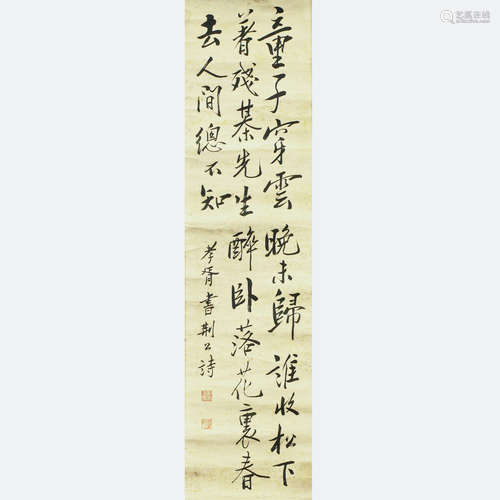 童子穿雲晚未歸誰收松下
著殘棊先生醉臥落花裏春
去人間總不知
孝胥書荆公詩